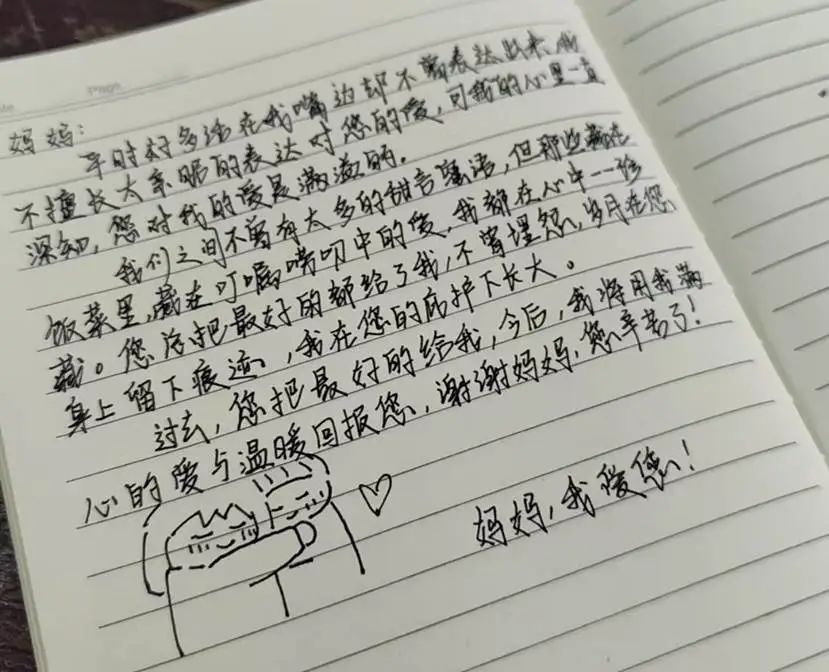 Page
妈妈：
平时好多话在我嘴边却不曾表达出来，我
不擅长太亲昵的表达对您的爱，可我的心里一直
深知，您对我的爱是满溢的。
我们之间不曾有太多的甜言蜜语，但那些藏在
饭菜里，藏在叮嘱唠叨中的爱，我都在心中一一珍
藏。您总把最好的都给了我，不曾埋怨，岁月在您
身上留下痕迹，我在您的庇护下长大。
过去，您把最好的给我，今后，我将用我满
心的爱与温暖回报您，谢谢妈妈，您辛苦了！
妈妈，我爱您！